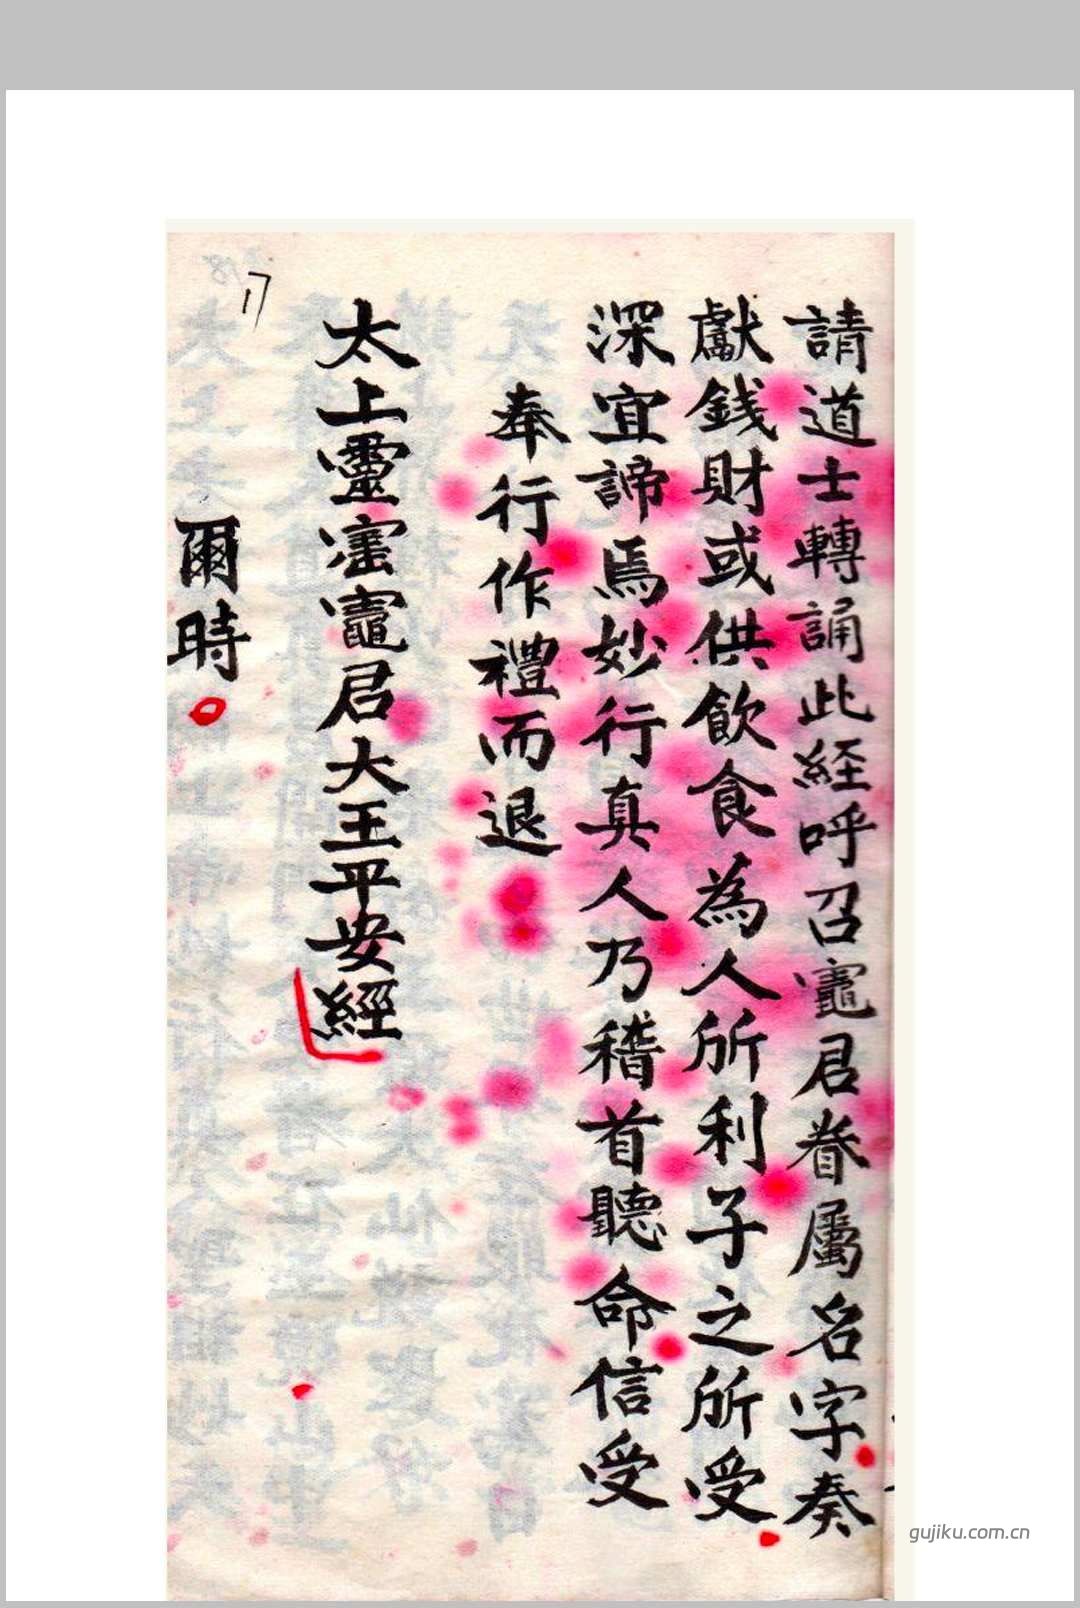 請道士轉誦此経呼召竈君眷屬名字奏
獻錢財或供飲食為人所利子之所受
深宜諦焉妙行真人乃稽首聽命信受
奉行作禮而退
太上靈竈君大王平安經
爾時
17
gujiku.com.cn